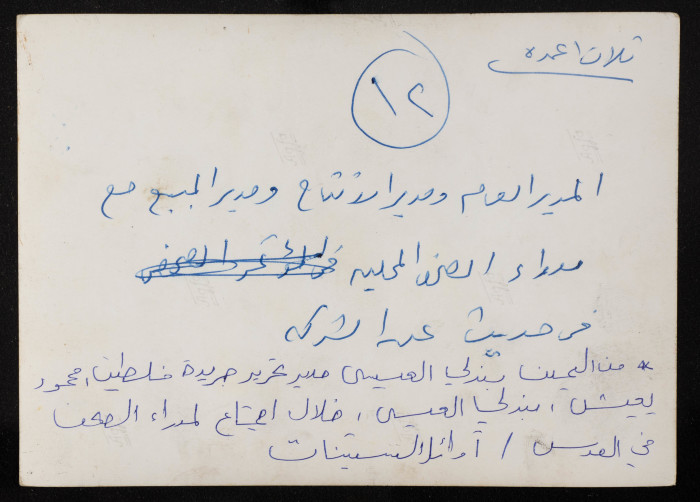 ثلاث اعمده
١٢
المدير العام ومدير الانتاج ومدير المبيع مع
مدراء الصحف المحليه في المؤتمر الصحفي
في حديث عن الشركه
* من اليمين بندلي العيسى مدير تحرير جريدة فلسطين، محمود
يعيش، بندلي العيسى، خلال اجتماع لمدراء الصحف
في القدس / أوائل الستينات